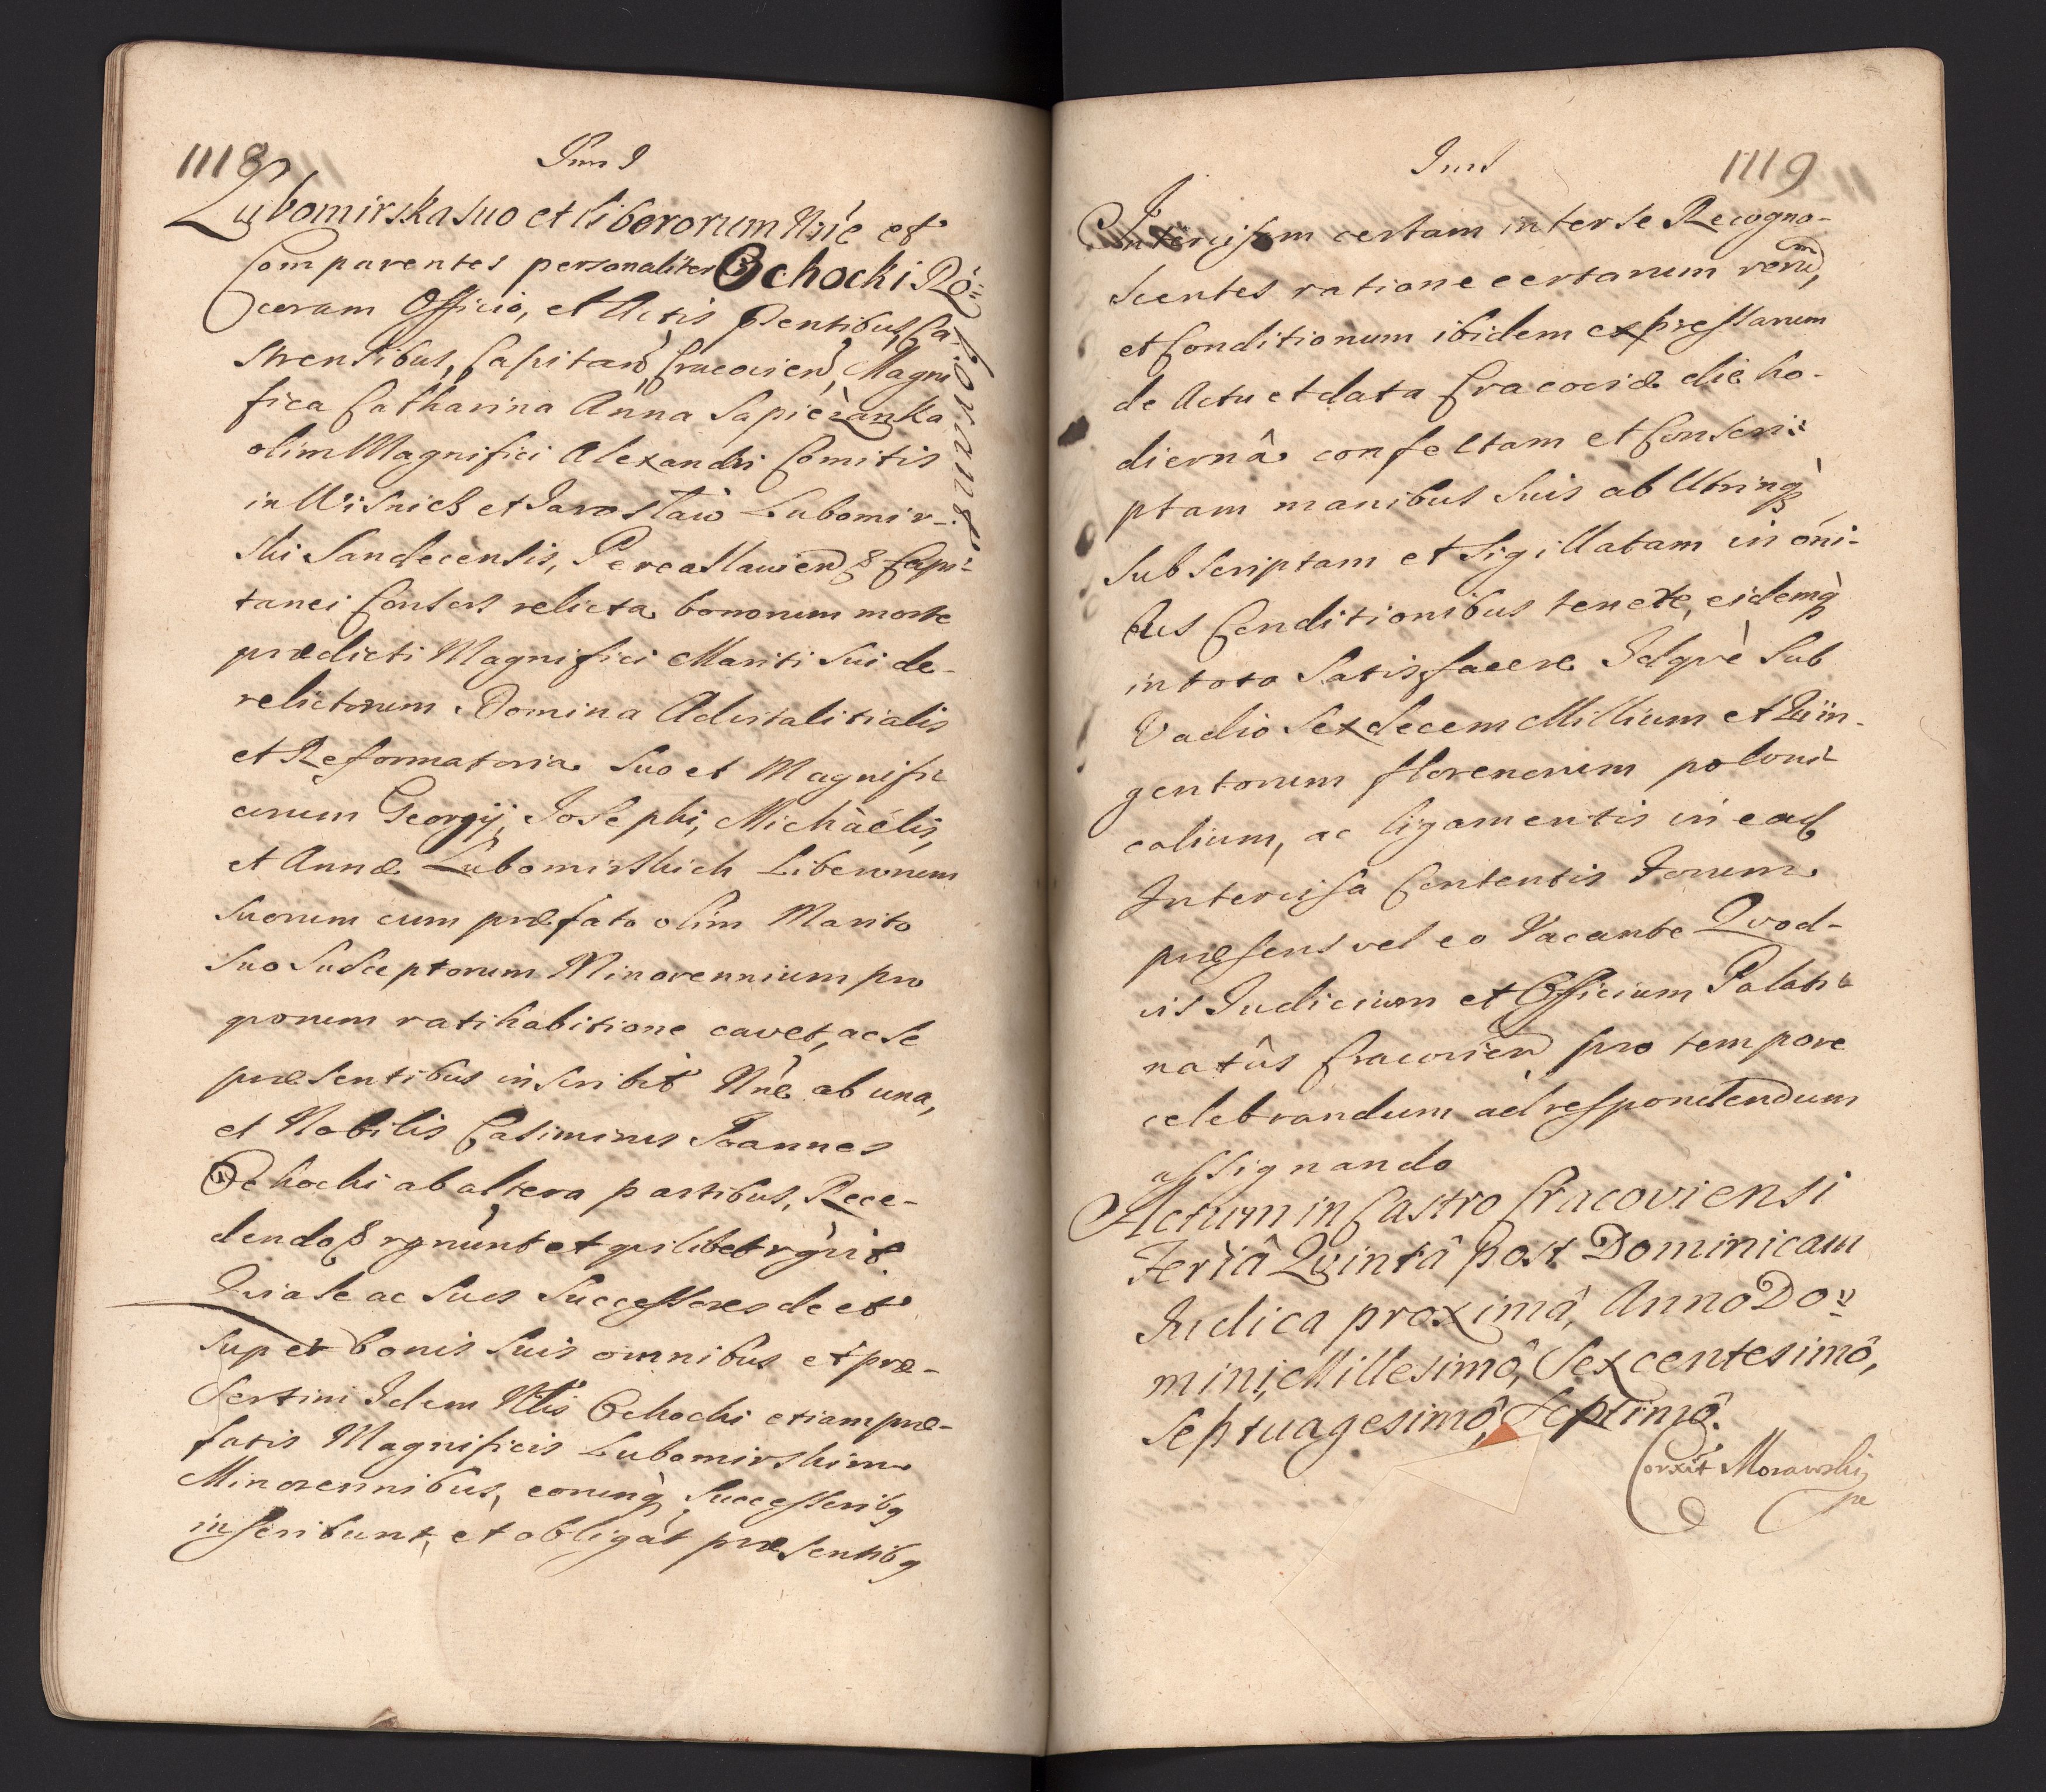 1118
Lubomirska suo et liberorum Nñe et
Comparentes personaliter Ochocki Rö=
coram Officio, et Actis pñtentibus Ca-
strensibus, Capitan, Cracovien, Magni
fica Catharina Anna Sapieżanka
olim Magnifici Alexandri Comitis
in Wisnicz et Jarosław Lubomir-
ski Sandecensis, Pereaslavien & Capi-
tanei Consors relicta bonorum morte
prædicti Magnifici Mariti sui de-
relictorum Domina Advitalitialis
et Reformatoria suo et Magnifi
corum Georgij, Josephi, Michäelis,
et Annæ Lubomirskich Liberorum
suorum cum præfato olim Marito
suo susceptorum Minorennium pro
quorum ratihabitione cavet, ac se
præsentibus inscribit Nñe ab una,
et Nobilis Casimirus Joannes
Ochocki ab altera partibus, Rece-
dendo & rgnünt et quilibet rgvit
Quia se ac suos Successores de et
super bonis suis omnibus et præ-
sertim Idem Nlis Ochocki etiam præ-
fatis Magnificis Lubomirskim
Minorennibus, eorumq Successoribq
inscribunt, et obligāt præsentibq
1119
Intercisam certam inter se Recogno-
scentes ratione certarum rerum,
et Conditionum ibidem expressarum
de Actu et data Cracoviæ die ho-
diernâ confectam et Conscri=
ptam manibus suis ab Utrinq
subscriptam et sigillatam in oni-
bus Conditionibus tenere, eidemq
in toto satisfacere Idqve sub
Vadio Sexdecem Millium et Quin-
gentorum florenorum poloni-
calium, ac ligamentis in ead
Intercisa Contentis Forum
præsens vel eo Vacante Quod-
vis Judicium et Officium Palati-
natûs Cracovien pro tempore
celebrandum ad respondendum
assignando
Actum in Castro Cracoviensi
Feriâ Quintâ post Dominicam
Judica proximâ, Anno Do=
mini, Millesimô, Sexcentesimô,
Septuagesimô, Septimô.
Corxit Morawski